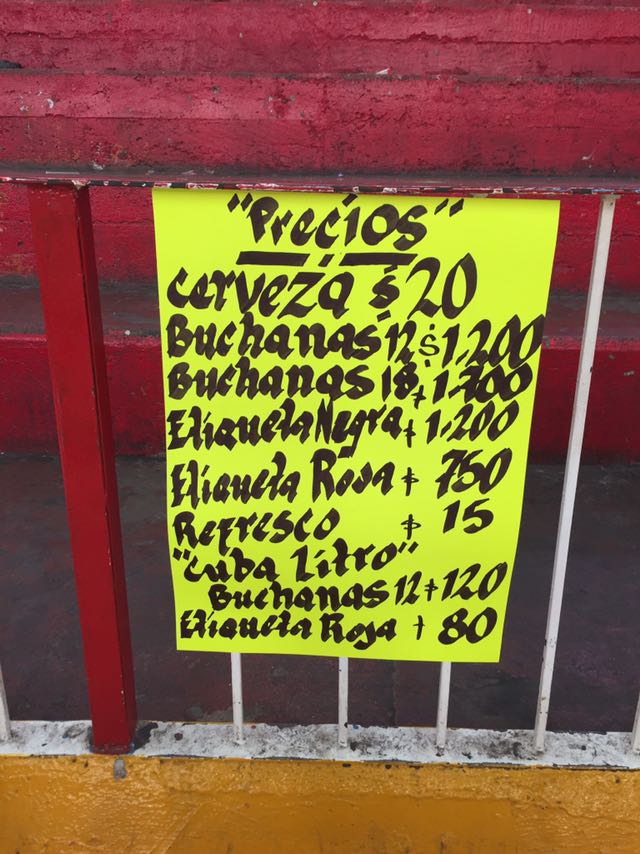 "Precios"
cerveza $20
Buchanas 12 $1.200
Buchanas 18 $1.700
Etiqueta Negra $1.200
Etiqueta Roja $750
Refresco $15
"Cuba Litro"
Buchanas 12 $120
Etiqueta Roja $80